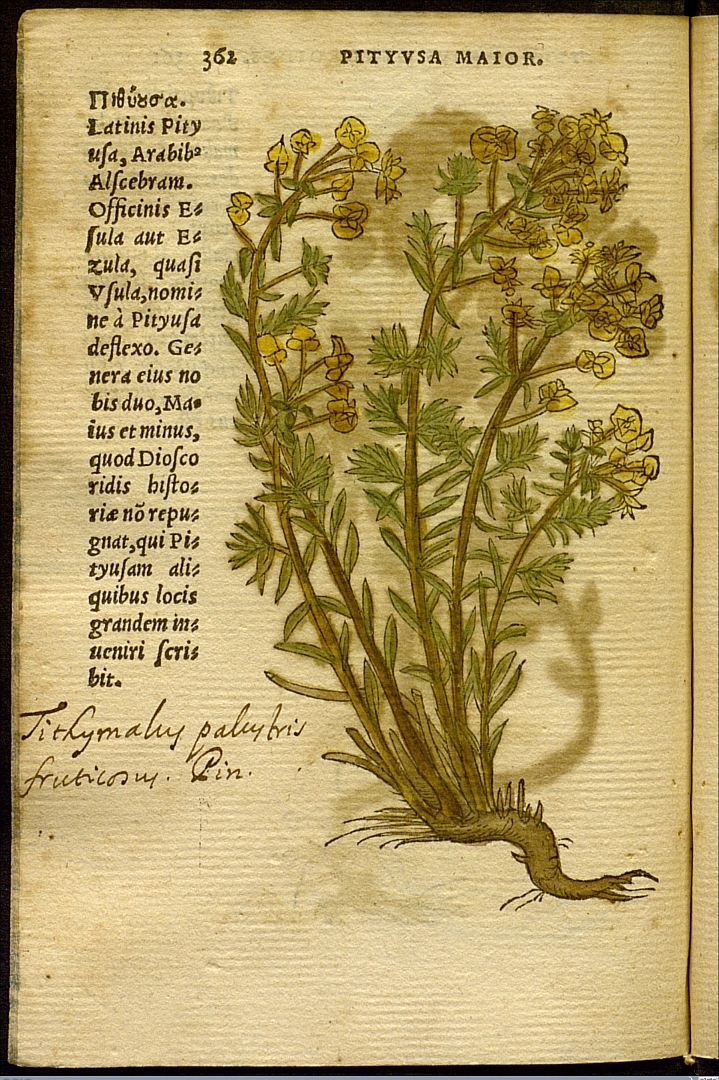 362 PITYVSA MAIOR.
Πιθύȣσα.
Latinis Pity
uſa, Arabibꝰ
Alſcebram.
Officinis E⸗
ſula aut E⸗
zula, quaſi
Vſula, nomi⸗
ne à Pityuſa
deflexo. Ge⸗
nera eius no
bis duo, Ma⸗
ius et minus,
quod Dioſco
ridis hiſto⸗
riæ nō repu⸗
gnat, qui Pi⸗
tyuſam ali⸗
quibus locis
grandem in⸗
ueniri ſcri⸗
bit.
Tithymalus palustris
fruticosus. Pin.